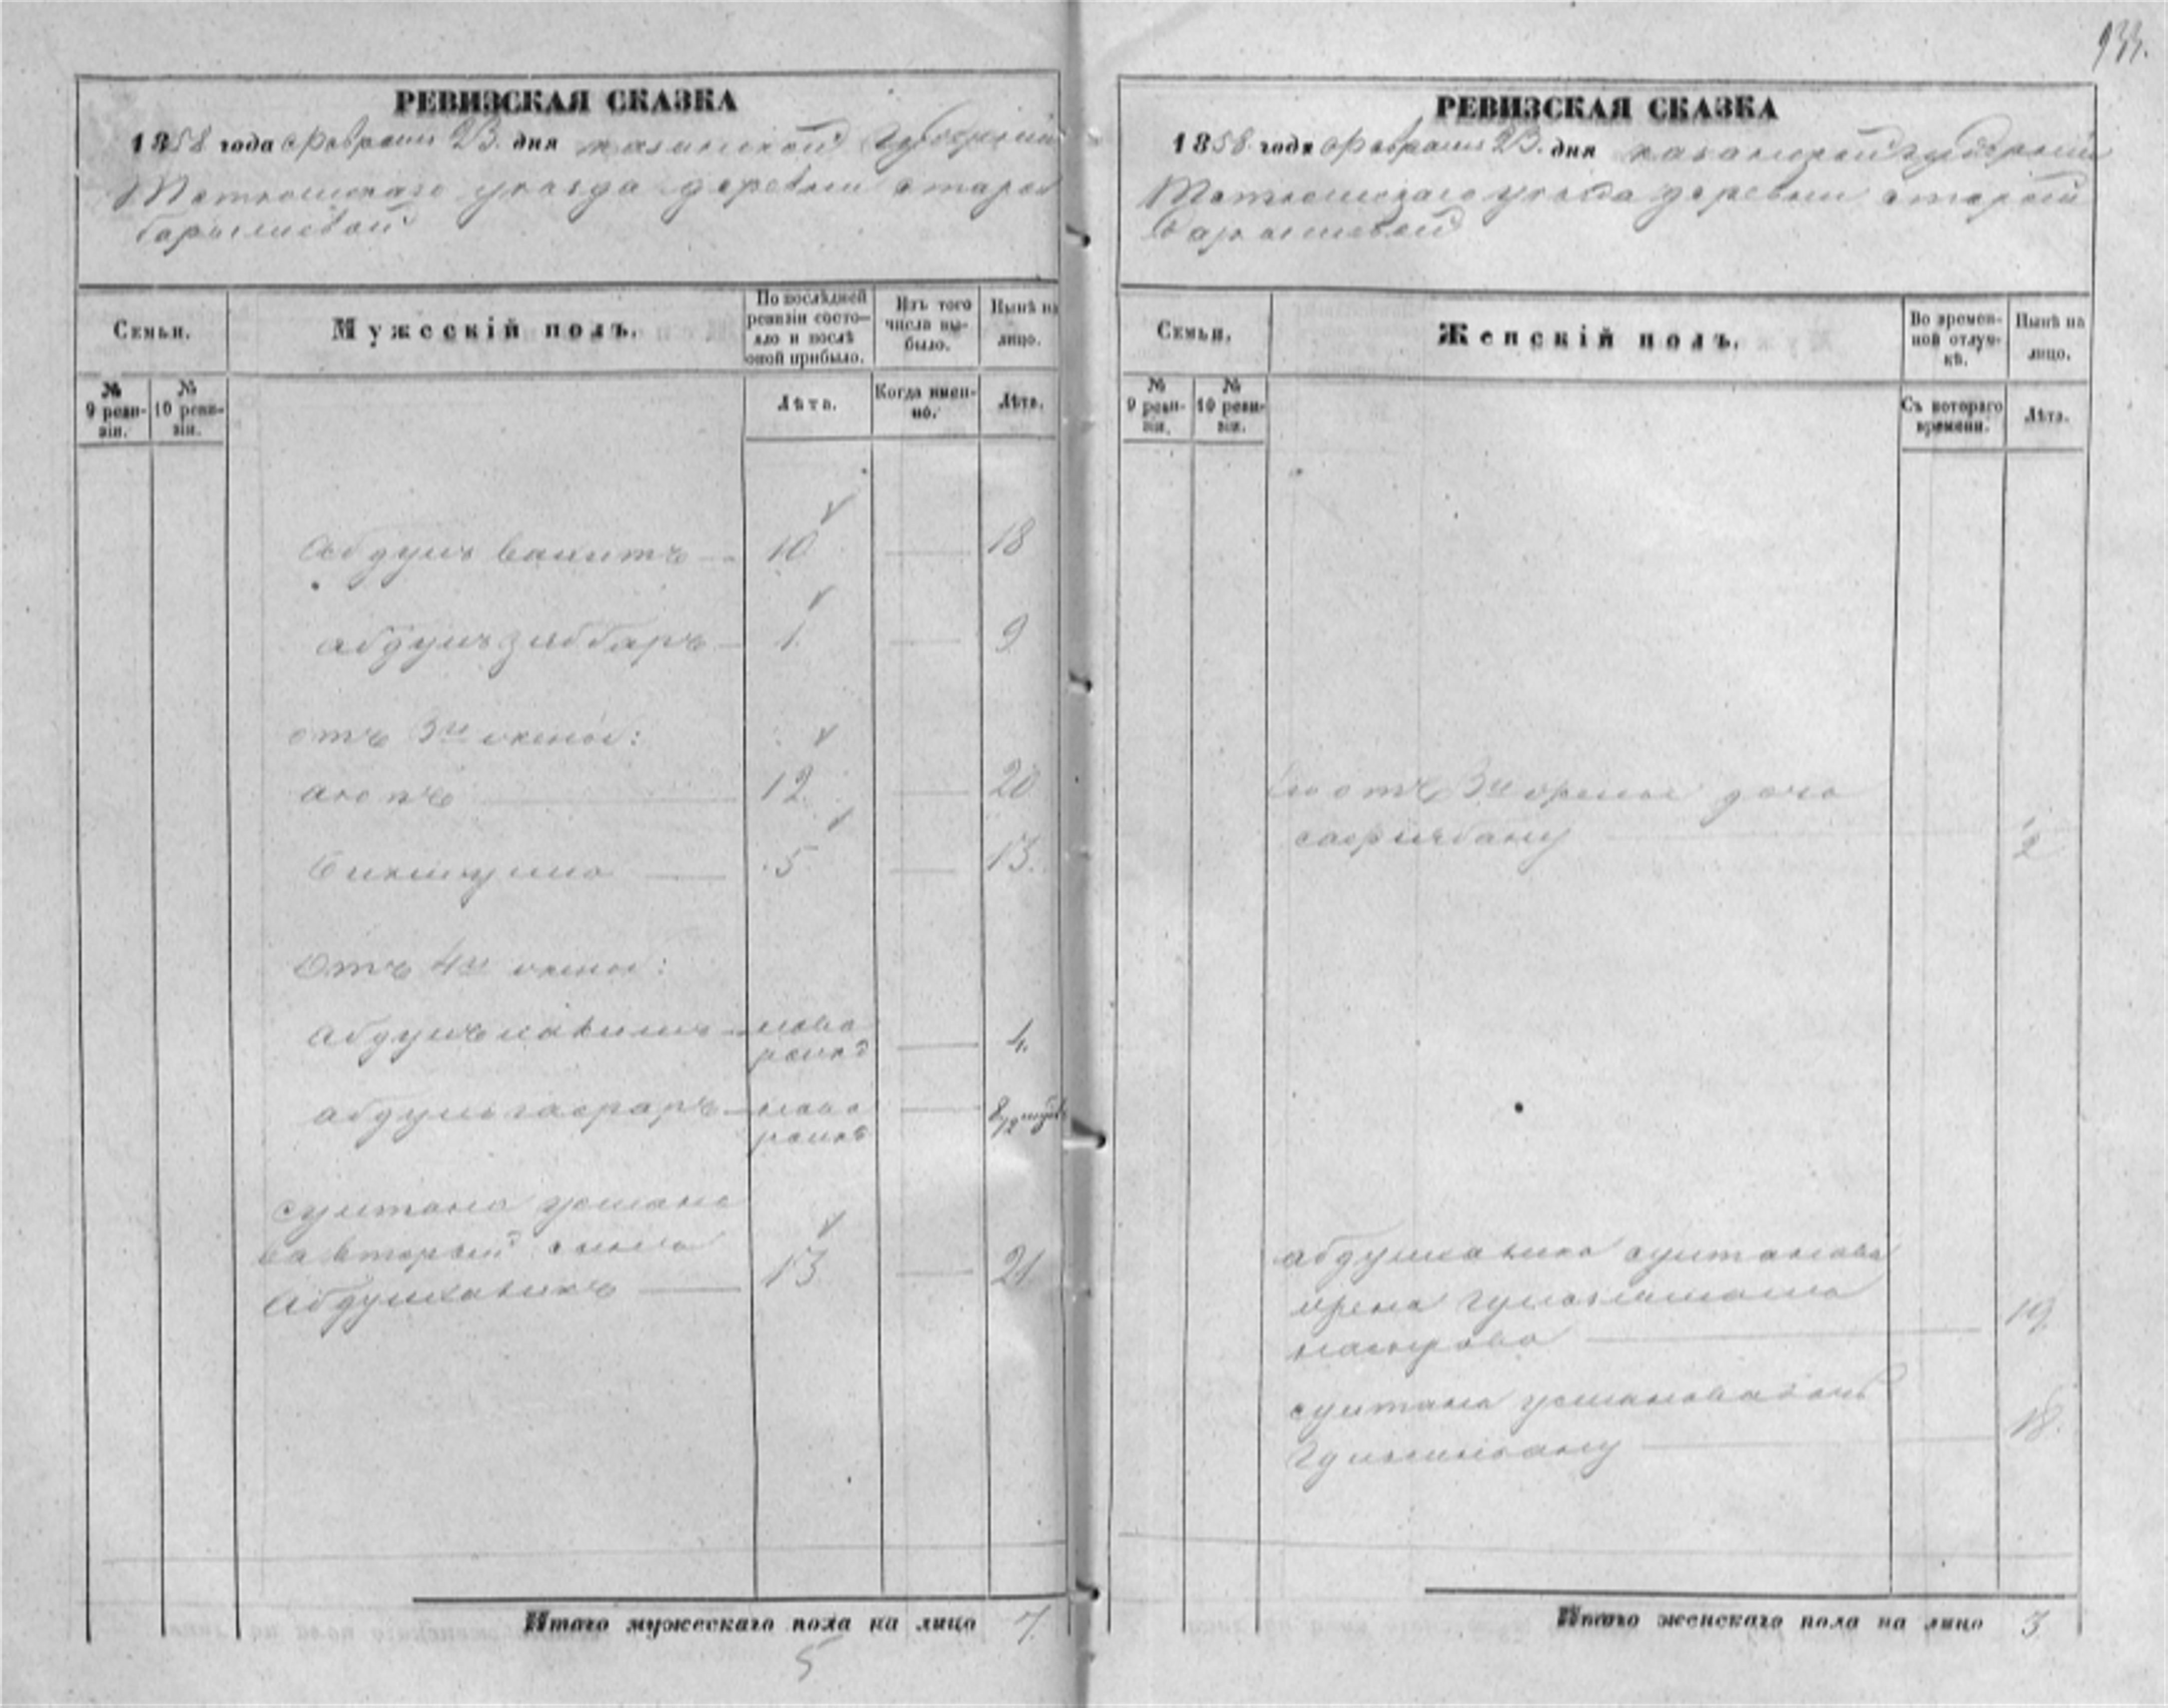 933.
РЕВИЗСКАЯ СКАЗКА
1858 года февраля 23. дня казанской губернии
Тетюшскаго уезда деревни старой
барышевой
Семьи.
Мужескій полъ.
По послѣдней ревизіи состояло и послѣ оной прибыло.
Изъ того числа выбыло.
Нынѣ на лицо.
№ 9 ревизіи.
№ 10 ревизіи.
Лѣта.
Когда именно.
Лѣта.
Абдулъ вагитъ 10 18
абдулъ зяббаръ 1. 9
отъ 3й жены:
аюпъ 12. 20
5 13.
Отъ 4й жены:
ново 4.
рожд
абдулъ гафаръ ново 8/12
рожд
султана усмано
ва второй сынъ
13 21
Итого мужескаго пола на лицо 7.
5
РЕВИЗСКАЯ СКАЗКА
1858 года февраля 23. дня казанской губернии
Тетюшскаго уезда деревни старой
Барышевой
Семьи.
Женскій полъ.
Во временной отлучкѣ.
Нынѣ на лицо.
№ 9 ревизіи.
№ 10 ревизіи.
Съ котораго времени.
Лѣта.
Его отъ 3й жены дочь
сафиябану 2
султанова
жена 19.
султана усманова дочь
18.
Итого женскаго пола на лицо 3